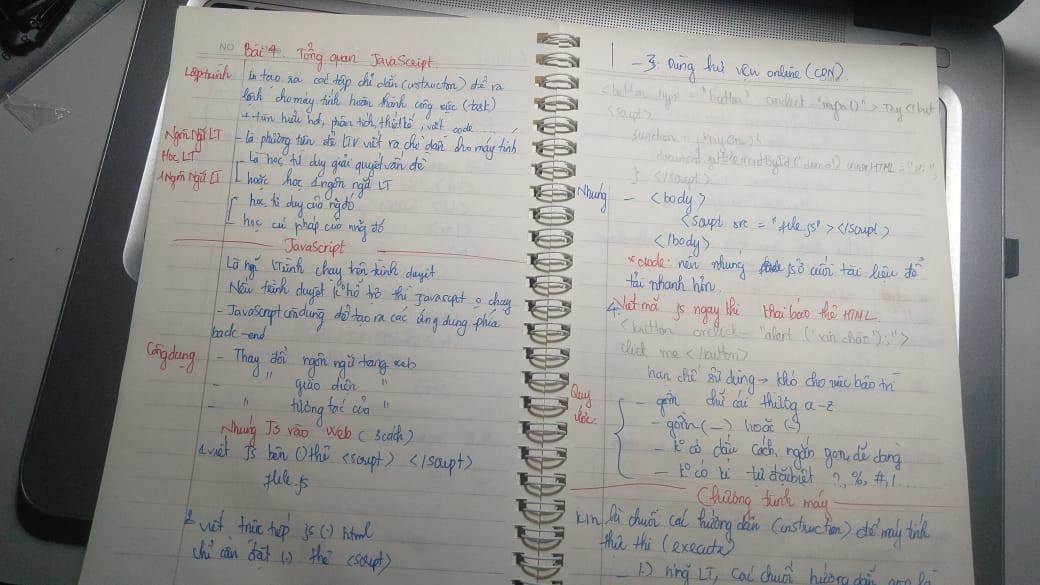 NO
Bài 4. Tổng quan JavaScript.
Lập trình là tạo ra các tập chỉ dẫn (instruction) để ra
lệnh cho máy tính hoàn thành công việc (task)
+ tìm hiểu hđ, phân tích, thiết kế, viết code .....
Ngôn Ngữ LT - là phương tiện để LTV viết ra chỉ dẫn cho máy tính
Học LT - Là học tư duy giải quyết vấn đề
1 Ngôn Ngữ LT hoặc học 1 ngôn ngữ LT
học tư duy của ng đó
- học cú pháp của nng đó
JavaScript
Là ng lập trình chạy trên trình duyệt
Nếu trình duyệt k° hỗ trợ thì javascript o chạy
- JavaScript còn dùng để tạo ra các ứng dụng phía
back-end
Công dụng - Thay đổi ngôn ngữ trang web
- " giao diện "
- " tương tác của "
Nhúng Js vào Web (3 cách)
1. viết Js bên () thẻ <script> </script>
file.js
2 viết trực tiếp js (.) html
chỉ cần đặt (.) thẻ <script>
- 3. Dùng thư viện online (CDN).
<button type = "button" onclick = "myon()"> Try </but
<script>
function = myOn() {
document.getElementById('demo') innerHTML = ;
} </script>
Nhúng - <body>
<script src = "file.js"></script>
</body>
* code: nên nhúng js ở cuối tài liệu để
tải nhanh hơn.
4. Viết mã js ngay khi khai báo thẻ HTML.
<button onclick = "alert ('xin chào');">
click me </button>
hạn chế sử dụng → khó cho việc bảo trì
Quy ước: - gồm chữ cái thường a-z
- gồm (_) hoặc (-)
- k° có dấu cách, ngắn gọn dễ dàng
- k° có kí tự đặc biệt ?, %, #, !...
Chương trình máy
K/n là chuỗi các hướng dẫn (instruction) để máy tính
thực thi (execute)
_ (.) nng LT, các chuỗi hướng dẫn